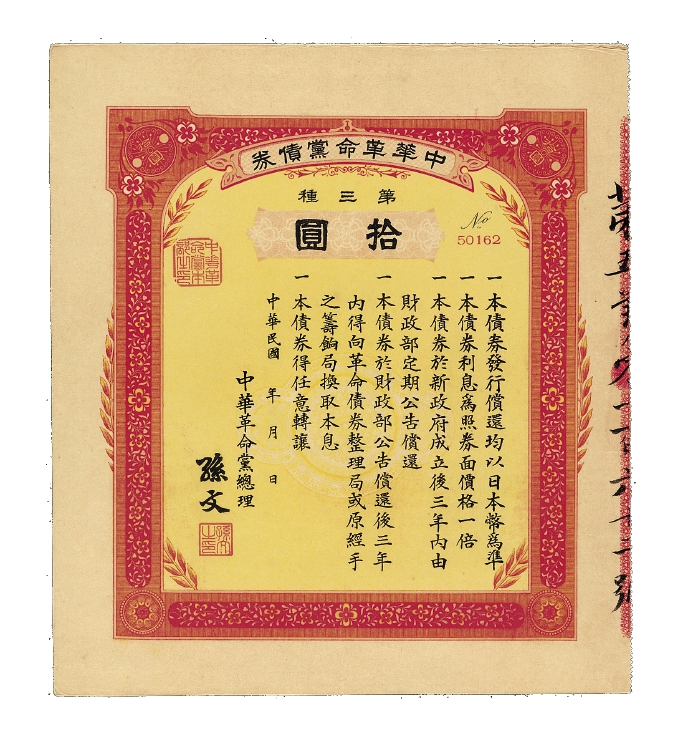 中華革命黨債券
第三種
拾圓
No
50162
一本債券發行償還均以日本幣爲準
一本債券利息爲照券面價格一倍
一本債券於新政府成立後三年內由
財政部定期公告償還
一本債券於財政部公告償還後三年
內得向革命債券整理局或原經手
之籌餉局換取本息
一本債券得任意轉讓
中華民國 年 月 日
中華革命黨總理
孫文